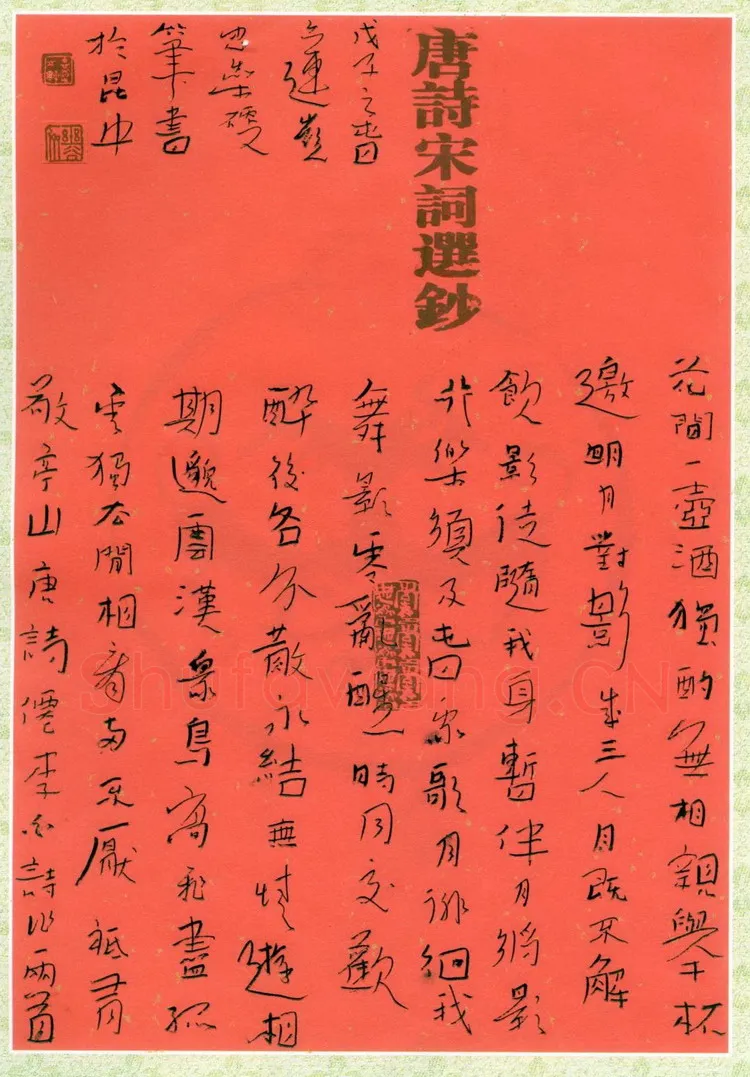 唐詩宋詞選鈔
花間一壺酒獨酌無相親舉杯
邀明月對影成三人月既不解
飲影徒隨我身暫伴月將影
行樂須及春我歌月徘徊我
舞影零亂醒時同交歡
醉後各分散永結無情遊相
期邈雲漢衆鳥高飛盡孤
雲獨去閒相看兩不厭祗有
敬亭山唐詩僊李白詩作兩首
戊子之春
硬
筆書
於昆
Shufawang.CN